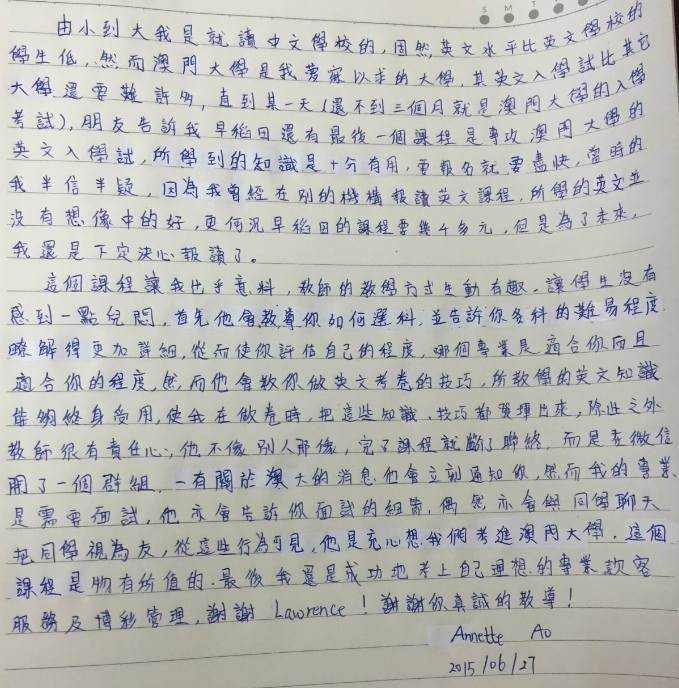 S M T
由小到大我是就讀中文學校的，固然英文水平比英文學校的
學生低，然而澳門大學是我夢寐以求的大學，其英文入學試比其它
大學還要難許多，直到某一天(還不到三個月就是澳門大學的入學
考試)，朋友告訴我早稻田還有最後一個課程是專攻澳門大學的
英文入學試，所學到的知識是十分有用，要報名就要盡快，當時的
我半信半疑，因為我曾經在別的機構報讀英文課程，所學的英文並
沒有想像中的好，更何況早稻田的課程要幾千多元，但是為了未來，
我還是下定決心報讀了。
這個課程讓我出乎意料，教師的教學方式生動有趣，讓學生沒有
感到一點兒悶，首先他會教導你如何選科，並告訴你各科的難易程度
瞭解得更加詳細，從而使你評估自己的程度，哪個專業是適合你而且
適合你的程度，然而他會教你做英文考卷的技巧，所教學的英文知識
能夠終身受用，使我在做卷時，把這些知識、技巧都發揮出來，除此之外
教師很有責任心，他不像別人那像，完了課程就斷了聯絡，而是在微信
開了一個群組，一有關於澳大的消息他會立刻通知你，然而我的專業
是需要面試，他亦會告訴你面試的細節，偶然亦會與同學聊天
把同學視為友，從這些行為可見，他是充心想我們考進澳門大學，這個
課程是物有所值的，最後我還是成功地考上自己理想的專業款客
服務及博彩管理，謝謝 Lawrence！謝謝你真誠的教導！
Annette Ao
2015/06/27